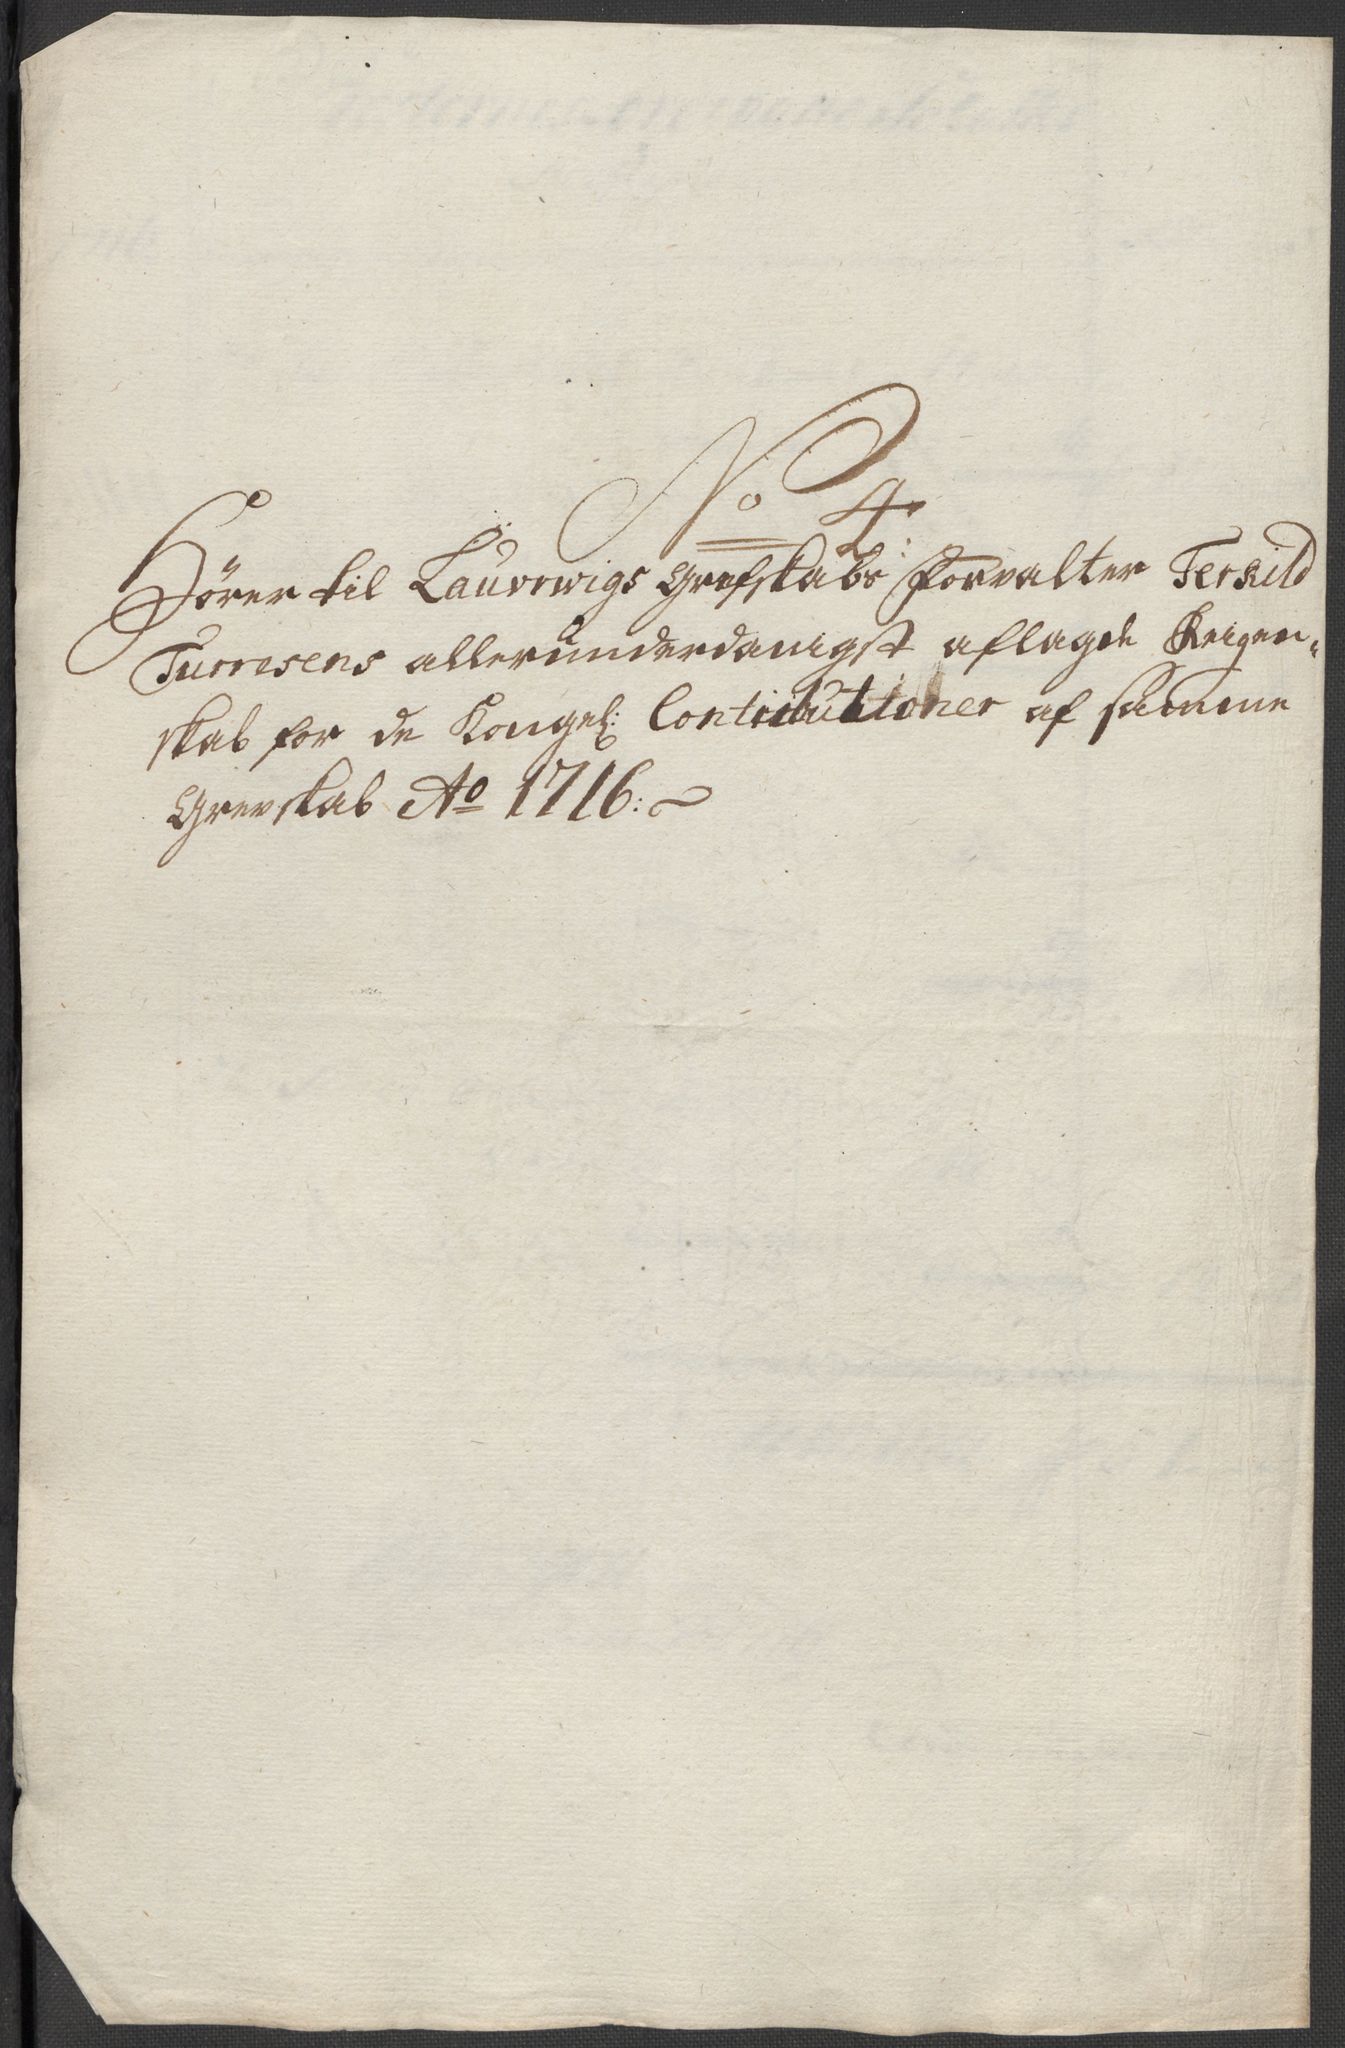 No 4.
Hörer til Laurwigs Grefskabs Forvalter Terkild
Turresens allerunderdanigst aflagde Reigen-
skab for de Kongel: Contributioner af samme
Grevskab Ao 1716: